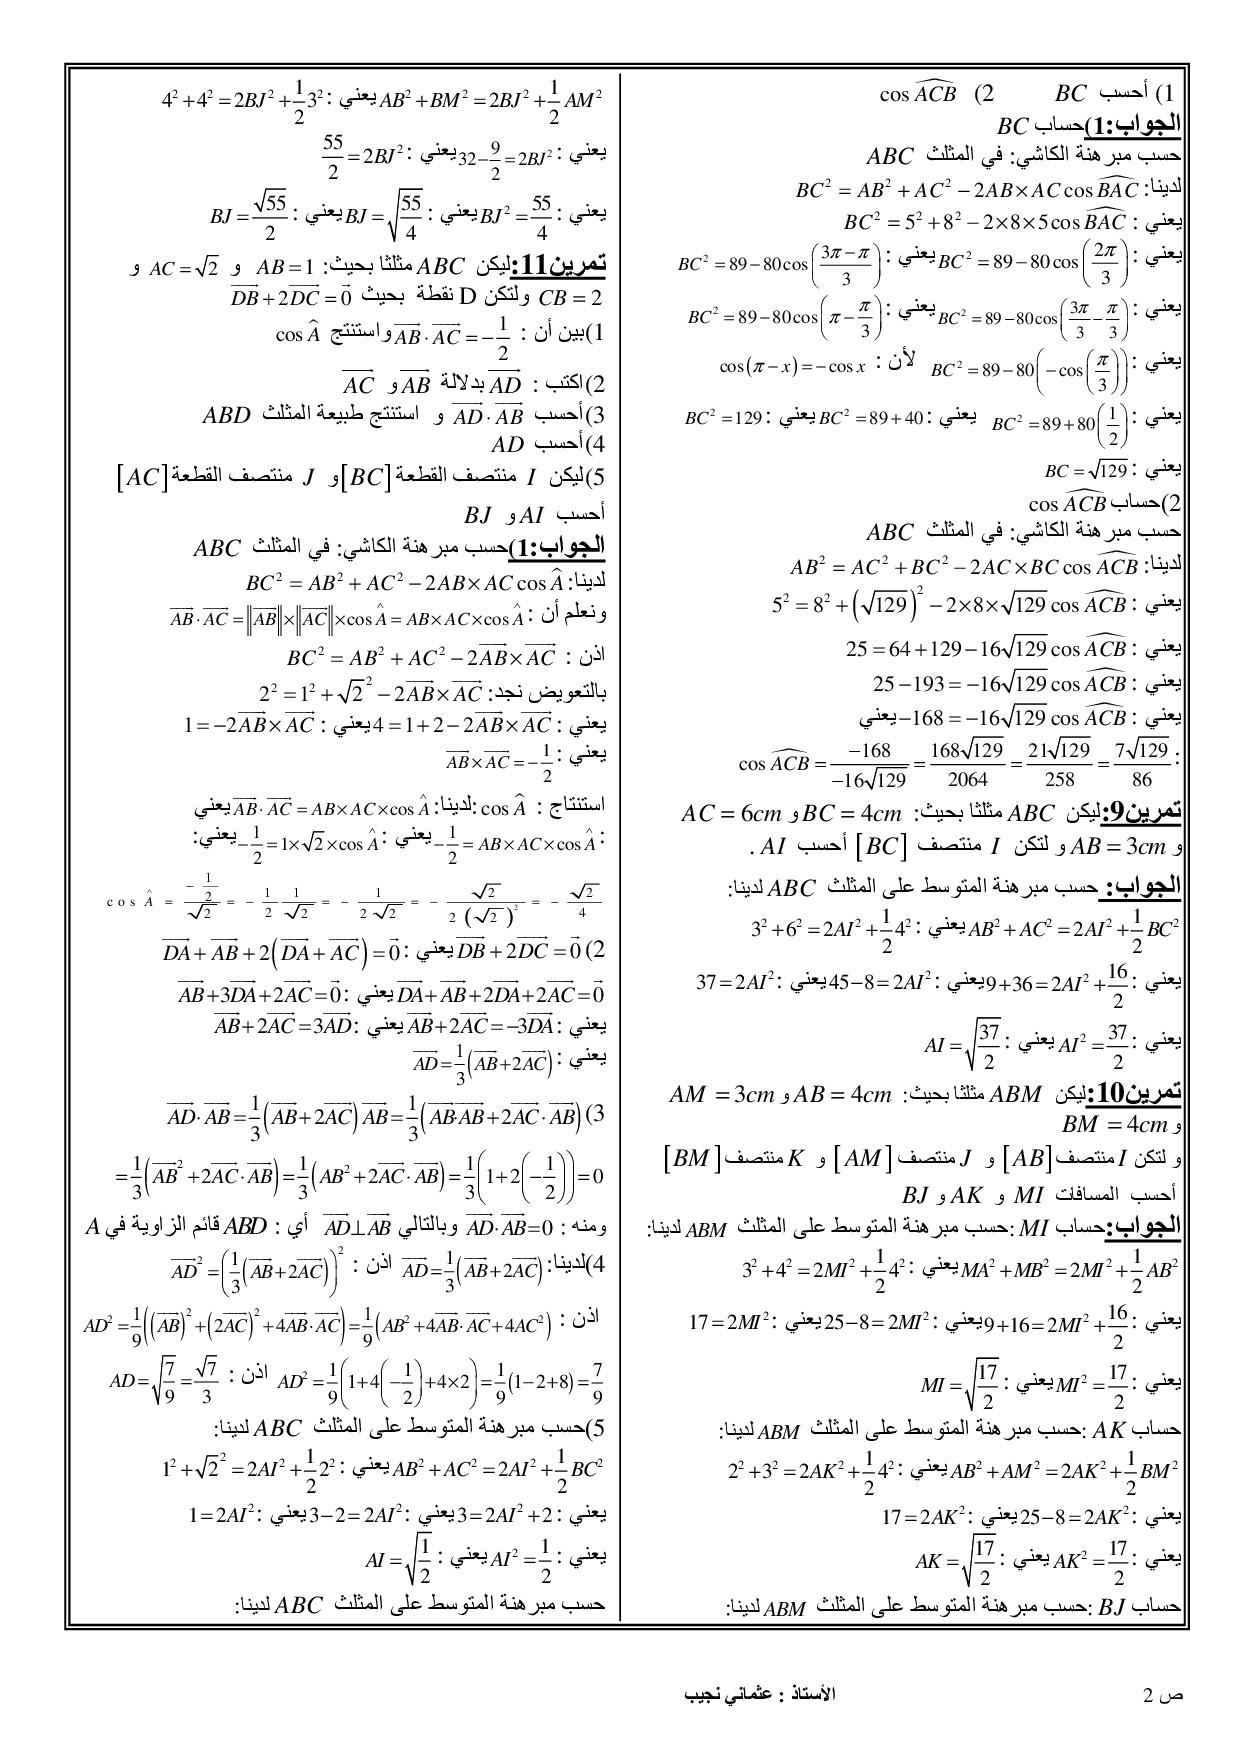 1) أحسب BC 2) cos ACB
الجواب:1)حساب BC
حسب مبرهنة الكاشي: في المثلث ABC
لدينا: BC² = AB² + AC² − 2AB×AC cos BAC
يعني : BC² = 5² + 8² − 2×8×5 cos BAC
يعني : BC² = 89 − 80cos(2π/3) يعني : BC² = 89 − 80cos((3π−π)/3)
يعني : BC² = 89 − 80cos(3π/3 − π/3) يعني : BC² = 89 − 80cos(π − π/3)
يعني : BC² = 89 − 80(−cos(π/3)) لأن : cos(π − x) = −cos x
يعني : BC² = 89 + 80(1/2) يعني : BC² = 89 + 40 يعني : BC² = 129
يعني : BC = √129
2)حساب cos ACB
حسب مبرهنة الكاشي: في المثلث ABC
لدينا: AB² = AC² + BC² − 2AC×BC cos ACB
يعني : 5² = 8² + (√129)² − 2×8×√129 cos ACB
يعني : 25 = 64 + 129 − 16√129 cos ACB
يعني : 25 − 193 = −16√129 cos ACB
يعني : −168 = −16√129 cos ACB يعني
: cos ACB = −168/(−16√129) = 168√129/2064 = 21√129/258 = 7√129/86
تمرين9: ليكن ABC مثلثا بحيث: BC = 4cm و AC = 6cm
و AB = 3cm و لتكن I منتصف [BC] أحسب AI .
الجواب: حسب مبرهنة المتوسط على المثلث ABC لدينا:
AB² + AC² = 2AI² + 1/2 BC² يعني : 3² + 6² = 2AI² + 1/2 4²
يعني : 9 + 36 = 2AI² + 16/2 يعني : 45 − 8 = 2AI² يعني : 37 = 2AI²
يعني : AI² = 37/2 يعني : AI = √(37/2)
تمرين10: ليكن ABM مثلثا بحيث: AB = 4cm و AM = 3cm
و BM = 4cm
و لتكن I منتصف [AB] و J منتصف [AM] و K منتصف [BM]
أحسب المسافات MI و AK و BJ
الجواب: حساب MI :حسب مبرهنة المتوسط على المثلث ABM لدينا:
MA² + MB² = 2MI² + 1/2 AB² يعني : 3² + 4² = 2MI² + 1/2 4²
يعني : 9 + 16 = 2MI² + 16/2 يعني : 25 − 8 = 2MI² يعني : 17 = 2MI²
يعني : MI² = 17/2 يعني : MI = √(17/2)
حساب AK :حسب مبرهنة المتوسط على المثلث ABM لدينا:
AB² + AM² = 2AK² + 1/2 BM² يعني : 2² + 3² = 2AK² + 1/2 4²
يعني : 25 − 8 = 2AK² يعني : 17 = 2AK²
يعني : AK² = 17/2 يعني : AK = √(17/2)
حساب BJ :حسب مبرهنة المتوسط على المثلث ABM لدينا:
AB² + BM² = 2BJ² + 1/2 AM² يعني : 4² + 4² = 2BJ² + 1/2 3²
يعني : 32 − 9/2 = 2BJ² يعني : 55/2 = 2BJ²
يعني : BJ² = 55/4 يعني : BJ = √(55/4) يعني : BJ = √55/2
تمرين11: ليكن ABC مثلثا بحيث: AB = 1 و AC = √2 و
CB = 2 ولتكن D نقطة بحيث DB + 2DC = 0
1)بين أن : AB · AC = −1/2 واستنتج cos A
2)اكتب : AD بدلالة AB و AC
3)أحسب AD · AB و استنتج طبيعة المثلث ABD
4)أحسب AD
5)ليكن I منتصف القطعة [BC] و J منتصف القطعة [AC]
أحسب AI و BJ
الجواب:1)حسب مبرهنة الكاشي: في المثلث ABC
لدينا: BC² = AB² + AC² − 2AB×AC cos A
ونعلم أن : AB · AC = ‖AB‖×‖AC‖×cos A = AB×AC×cos A
اذن : BC² = AB² + AC² − 2AB×AC
بالتعويض نجد: 2² = 1² + √2² − 2AB×AC
يعني : 4 = 1 + 2 − 2AB×AC يعني : 1 = −2AB×AC
يعني : AB×AC = −1/2
استنتاج : cos A :لدينا: AB · AC = AB×AC×cos A يعني
: −1/2 = AB×AC×cos A يعني : −1/2 = 1×√2×cos A يعني:
cos A = (−1/2)/√2 = −1/2 1/√2 = −1/(2√2) = −√2/(2(√2)²) = −√2/4
2) DB + 2DC = 0 يعني : DA + AB + 2(DA + AC) = 0
DA + AB + 2DA + 2AC = 0 يعني : AB + 3DA + 2AC = 0
يعني : AB + 2AC = −3DA يعني : AB + 2AC = 3AD
يعني : AD = 1/3(AB + 2AC)
3) AD · AB = 1/3(AB + 2AC)AB = 1/3(AB·AB + 2AC · AB)
= 1/3(AB² + 2AC · AB) = 1/3(AB² + 2AC · AB) = 1/3(1 + 2(−1/2)) = 0
ومنه : AD · AB = 0 وبالتالي AD ⊥ AB أي : ABD قائم الزاوية في A
4)لدينا: AD = 1/3(AB + 2AC) اذن : AD² = (1/3(AB + 2AC))²
اذن : AD² = 1/9((AB)² + (2AC)² + 4AB · AC) = 1/9(AB² + 4AB · AC + 4AC²)
AD² = 1/9(1 + 4(−1/2) + 4×2) = 1/9(1 − 2 + 8) = 7/9 اذن : AD = √(7/9) = √7/3
5)حسب مبرهنة المتوسط على المثلث ABC لدينا:
AB² + AC² = 2AI² + 1/2 BC² يعني : 1² + √2² = 2AI² + 1/2 2²
يعني : 3 = 2AI² + 2 يعني : 3 − 2 = 2AI² يعني : 1 = 2AI²
يعني : AI² = 1/2 يعني : AI = √(1/2)
حسب مبرهنة المتوسط على المثلث ABC لدينا:
ص 2 الأستاذ : عثماني نجيب